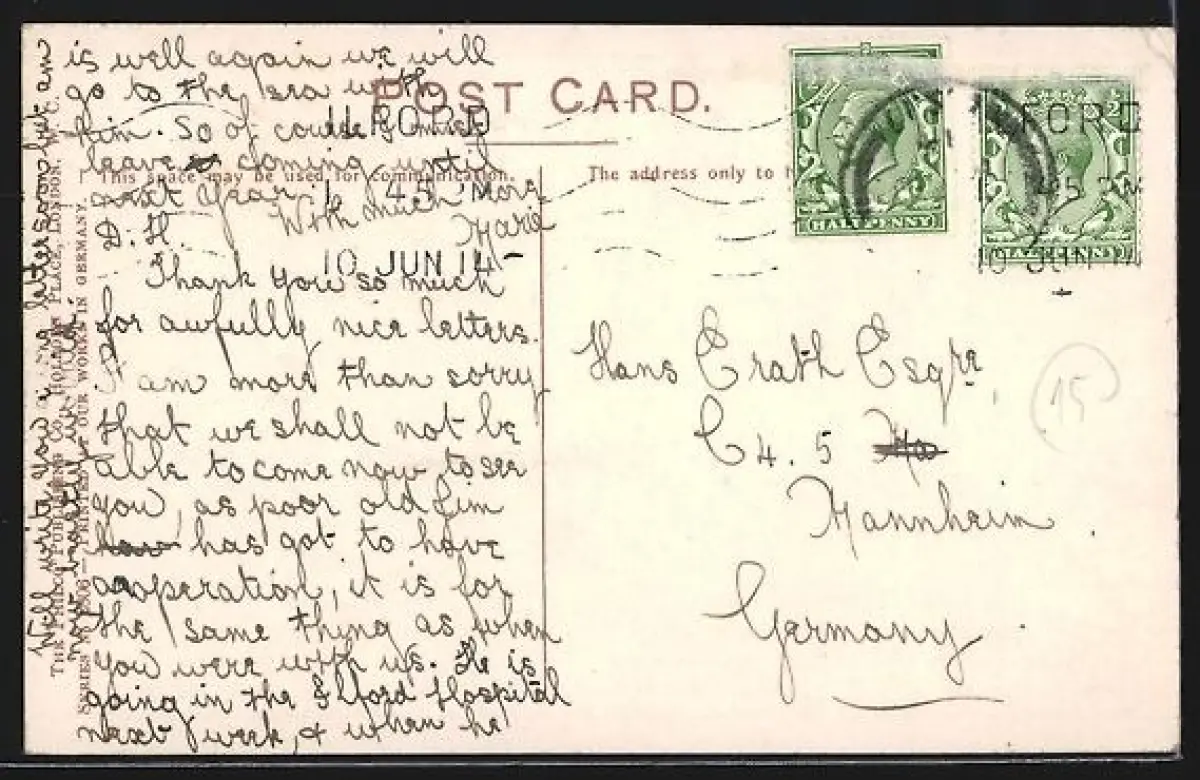 POST CARD.
This space may be used for communication.
The address only to
ILFORD
1 45
10 JUN 14
FORD
45 PM
10 JUN 14
HALFPENNY
HALFPENNY
D. H.
Thank you so much
for awfully nice letters.
I am more than sorry
that we shall not be
able to come now to see
you, as poor old Jim
has got to have
operation, it is for
the same thing as when
you were with us. He is
going in the Ilford Hospital
next week, & when he
is well again we will
go to the sea with
him. So of course I must
leave coming until
next year.
With much
Marie
Will write you a long letter soon but am
Hans Erath Esqre,
C 4. 5
Mannheim.
Germany.
15
THE PHILCO PUBLISHING CO., HOLBORN PLACE, LONDON, W.C.
SERIES PRINTED AT OUR WORKS IN GERMANY.